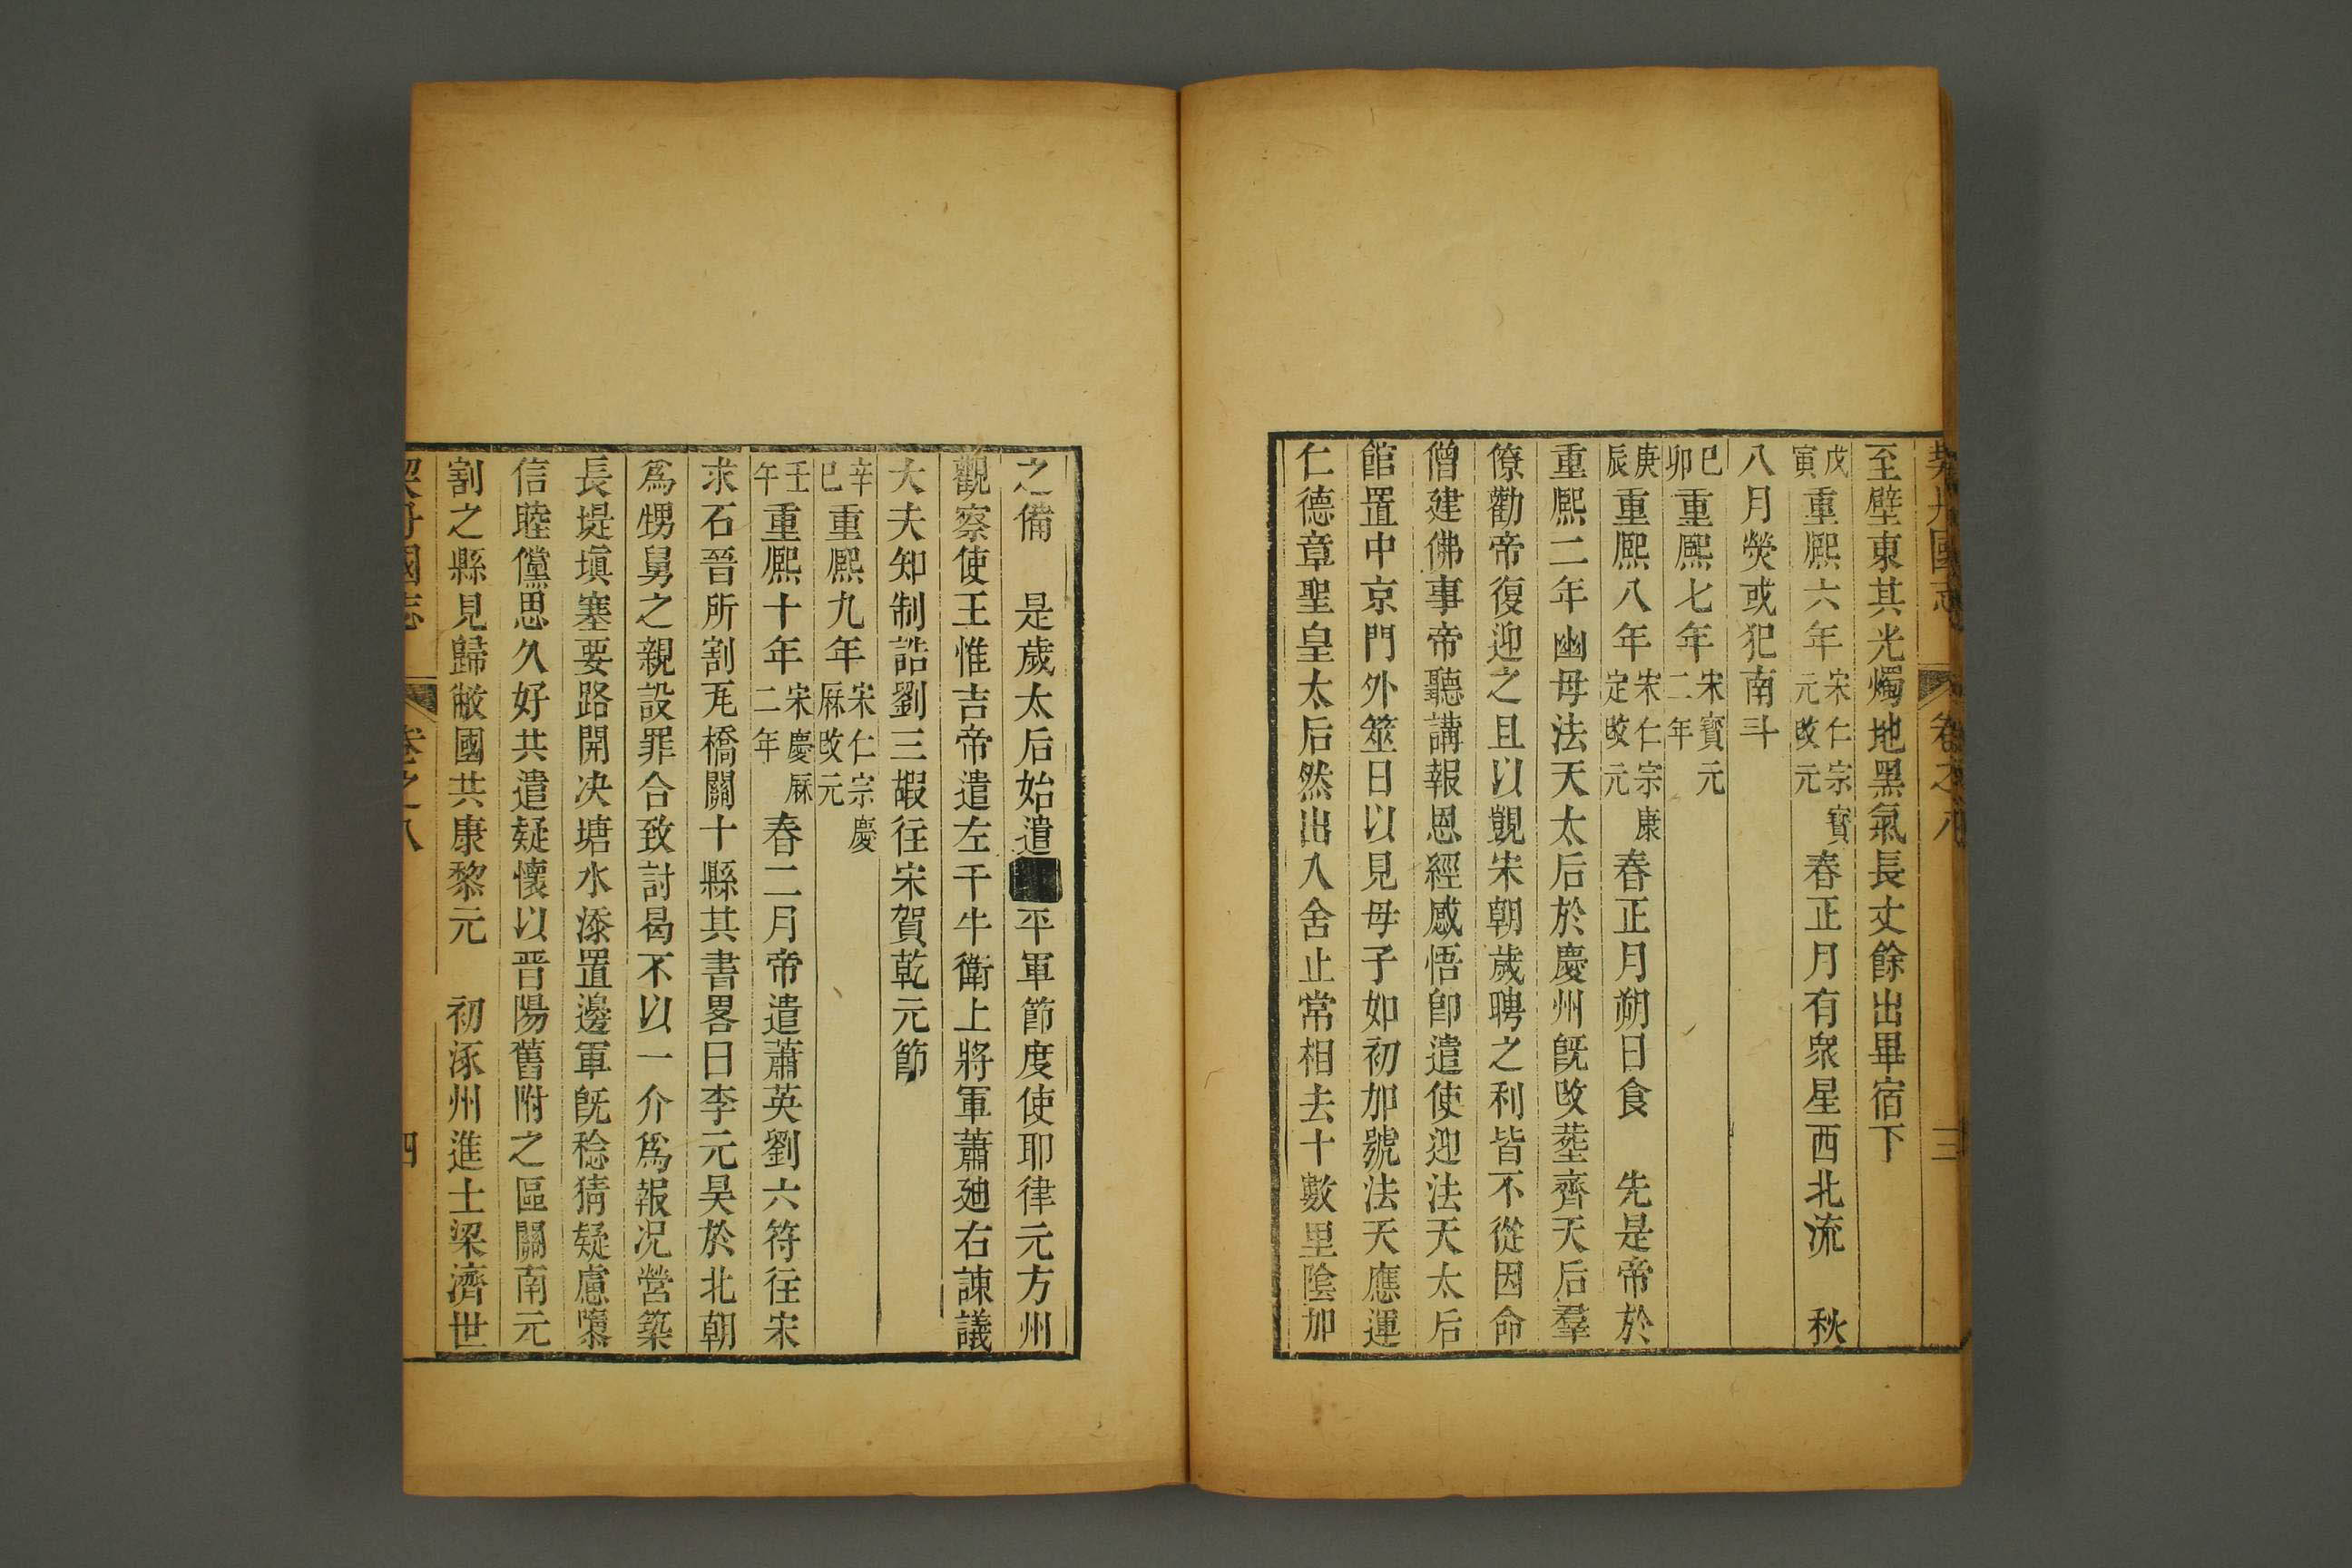 契丹國志 卷之八 三
至壁東其光燭地黑氣長丈餘出畢宿下
戊寅重熙六年宋仁宗寶元改元春正月有衆星西北流　秋
八月熒或犯南斗
巳卯重熙七年宋寶元二年
庚辰重熙八年宋仁宗康定改元春正月朔日食　先是帝於
重熙二年幽母法天太后於慶州旣改塟齊天后羣
僚勸帝復迎之且以覬宋朝歲聘之利皆不從因命
僧建佛事帝聽講報恩經感悟卽遣使迎法天太后
館置中京門外筮日以見母子如初加號法天應運
仁德章聖皇太后然出入舍止常相去十數里陰加
之備　是歲太后始遣平軍節度使耶律元方州
觀察使王惟吉帝遣左千牛衛上將軍蕭廸右諫議
大夫知制誥劉三嘏往宋賀乾元節
辛巳重熙九年宋仁宗慶厤改元
壬午重熙十年宋慶厤二年春二月帝遣蕭英劉六符往宋
求石晉所割瓦橋關十縣其書畧曰李元昊於北朝
爲甥舅之親設罪合致討曷不以一介爲報况營築
長堤塡塞要路開决塘水添置邊軍旣稔猜疑慮隳
信睦儻思久好共遣疑懷以晋陽舊附之區關南元
割之縣見歸敝國共康黎元　初涿州進士梁濟世
契丹國志 卷之八 四